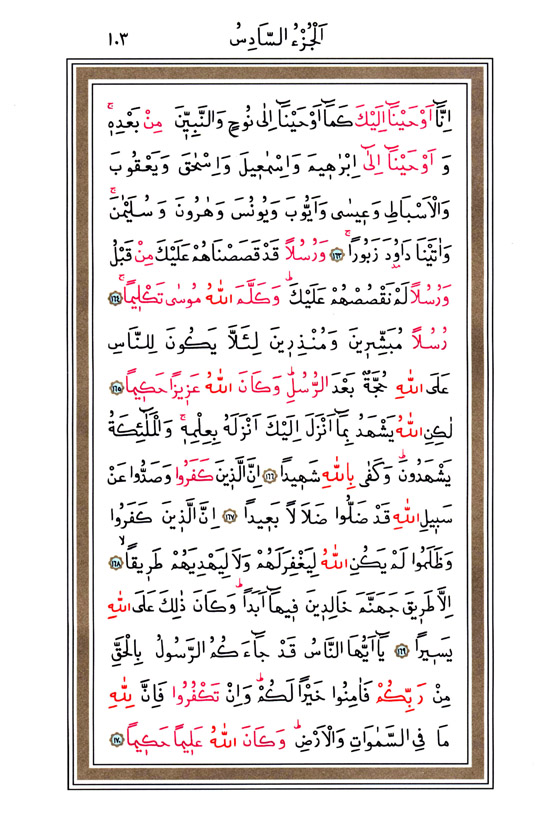 اَلْجُزْءُ السَّادِسُ ١٠٣
اِنَّٓا اَوْحَيْنَٓا اِلَيْكَ كَمَٓا اَوْحَيْنَٓا اِلٰى نُوحٍ وَالنَّبِيّٖنَ مِنْ بَعْدِهٖۚ
وَ اَوْحَيْنَٓا اِلٰٓى اِبْرٰهٖيمَ وَاِسْمٰعٖيلَ وَاِسْحٰقَ وَيَعْقُوبَ
وَالْاَسْبَاطِ وَعٖيسٰى وَاَيُّوبَ وَيُونُسَ وَهٰرُونَ وَسُلَيْمٰنَۚ
وَاٰتَيْنَا دَاوُ۫دَ زَبُوراًۚ ﴿١٦٣﴾ وَرُسُلاً قَدْ قَصَصْنَاهُمْ عَلَيْكَ مِنْ قَبْلُ
وَرُسُلاً لَمْ نَقْصُصْهُمْ عَلَيْكَۜ وَكَلَّمَ اللّٰهُ مُوسٰى تَكْلٖيماًۚ ﴿١٦٤﴾
رُسُلاً مُبَشِّرٖينَ وَمُنْذِرٖينَ لِئَلَّا يَكُونَ لِلنَّاسِ
عَلَى اللّٰهِ حُجَّةٌ بَعْدَ الرُّسُلِۜ وَكَانَ اللّٰهُ عَزٖيزاً حَكٖيماً ﴿١٦٥﴾
لٰكِنِ اللّٰهُ يَشْهَدُ بِمَٓا اَنْزَلَ اِلَيْكَ اَنْزَلَهُ بِعِلْمِهٖۚ وَالْمَلٰٓئِكَةُ
يَشْهَدُونَۜ وَكَفٰى بِاللّٰهِ شَهٖيداً ﴿١٦٦﴾ اِنَّ الَّذٖينَ كَفَرُوا وَصَدُّوا عَنْ
سَبٖيلِ اللّٰهِ قَدْ ضَلُّوا ضَلَالاً بَعٖيداً ﴿١٦٧﴾ اِنَّ الَّذٖينَ كَفَرُوا
وَظَلَمُوا لَمْ يَكُنِ اللّٰهُ لِيَغْفِرَ لَهُمْ وَلَا لِيَهْدِيَهُمْ طَرٖيقاًۙ ﴿١٦٨﴾
اِلَّا طَرٖيقَ جَهَنَّمَ خَالِدٖينَ فٖيهَٓا اَبَداًۜ وَكَانَ ذٰلِكَ عَلَى اللّٰهِ
يَسٖيراً ﴿١٦٩﴾ يَٓا اَيُّهَا النَّاسُ قَدْ جَٓاءَكُمُ الرَّسُولُ بِالْحَقِّ
مِنْ رَبِّكُمْ فَاٰمِنُوا خَيْراً لَكُمْۜ وَاِنْ تَكْفُرُوا فَاِنَّ لِلّٰهِ
مَا فِي السَّمٰوَاتِ وَالْاَرْضِۜ وَكَانَ اللّٰهُ عَلٖيماً حَكٖيماً ﴿١٧٠﴾